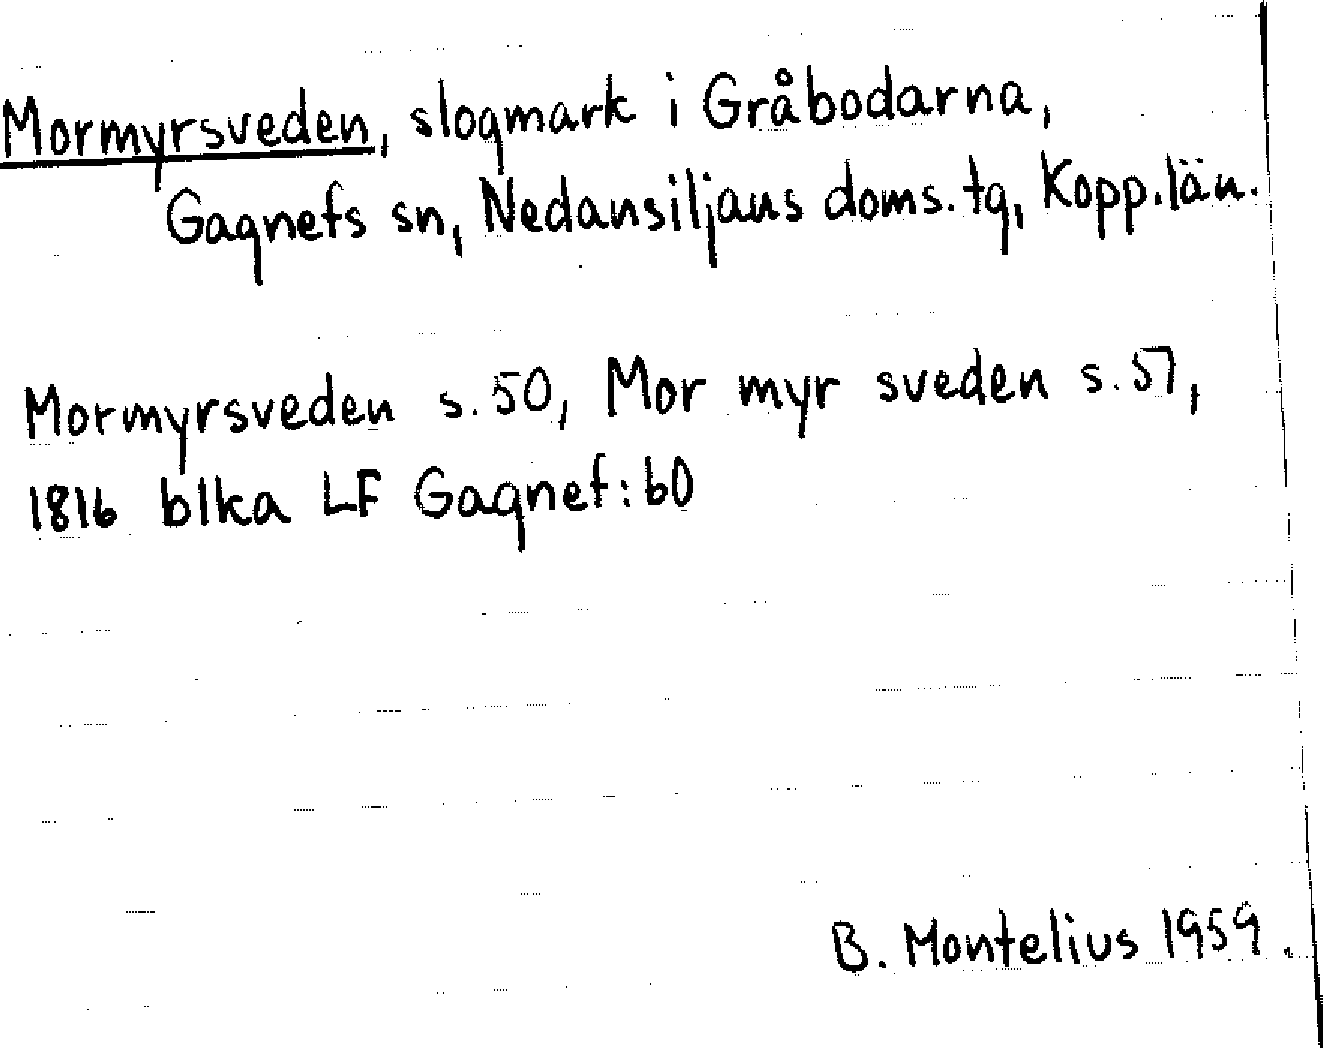 Mormyrsveden, slogmark i Gråbodarna,
Gagnefs sn, Nedansiljans doms. tg, Kopp. län.
Mormyrsveden s. 50, Mor myr sveden s. 57,
1816 blka LF Gagnef: 60
B. Montelius 1959.